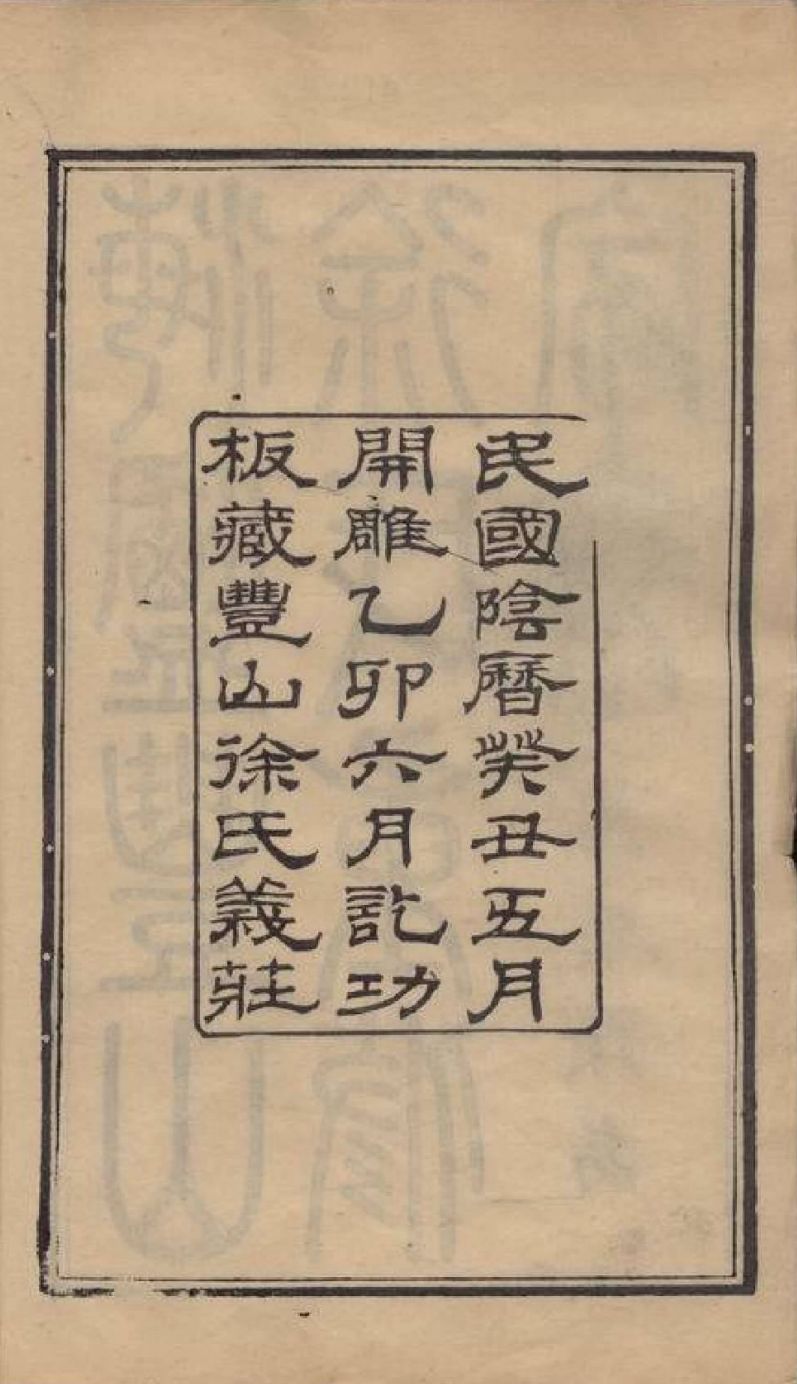 民國陰曆癸丑五月
開雕乙卯六月訖功
板藏豐山徐氏義莊